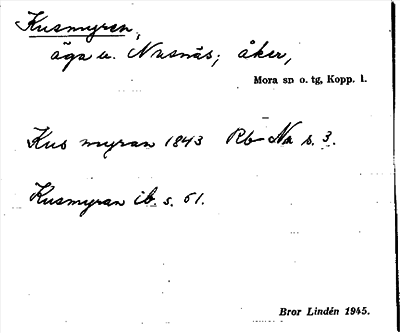 Kusmyren,
äga u. Nusnäs; åker,
Mora sn o. tg, Kopp. l.
Kus myran 1843 Rb Na s. 3.
Kusmyran ib. s. 61.
Bror Lindén 1945.